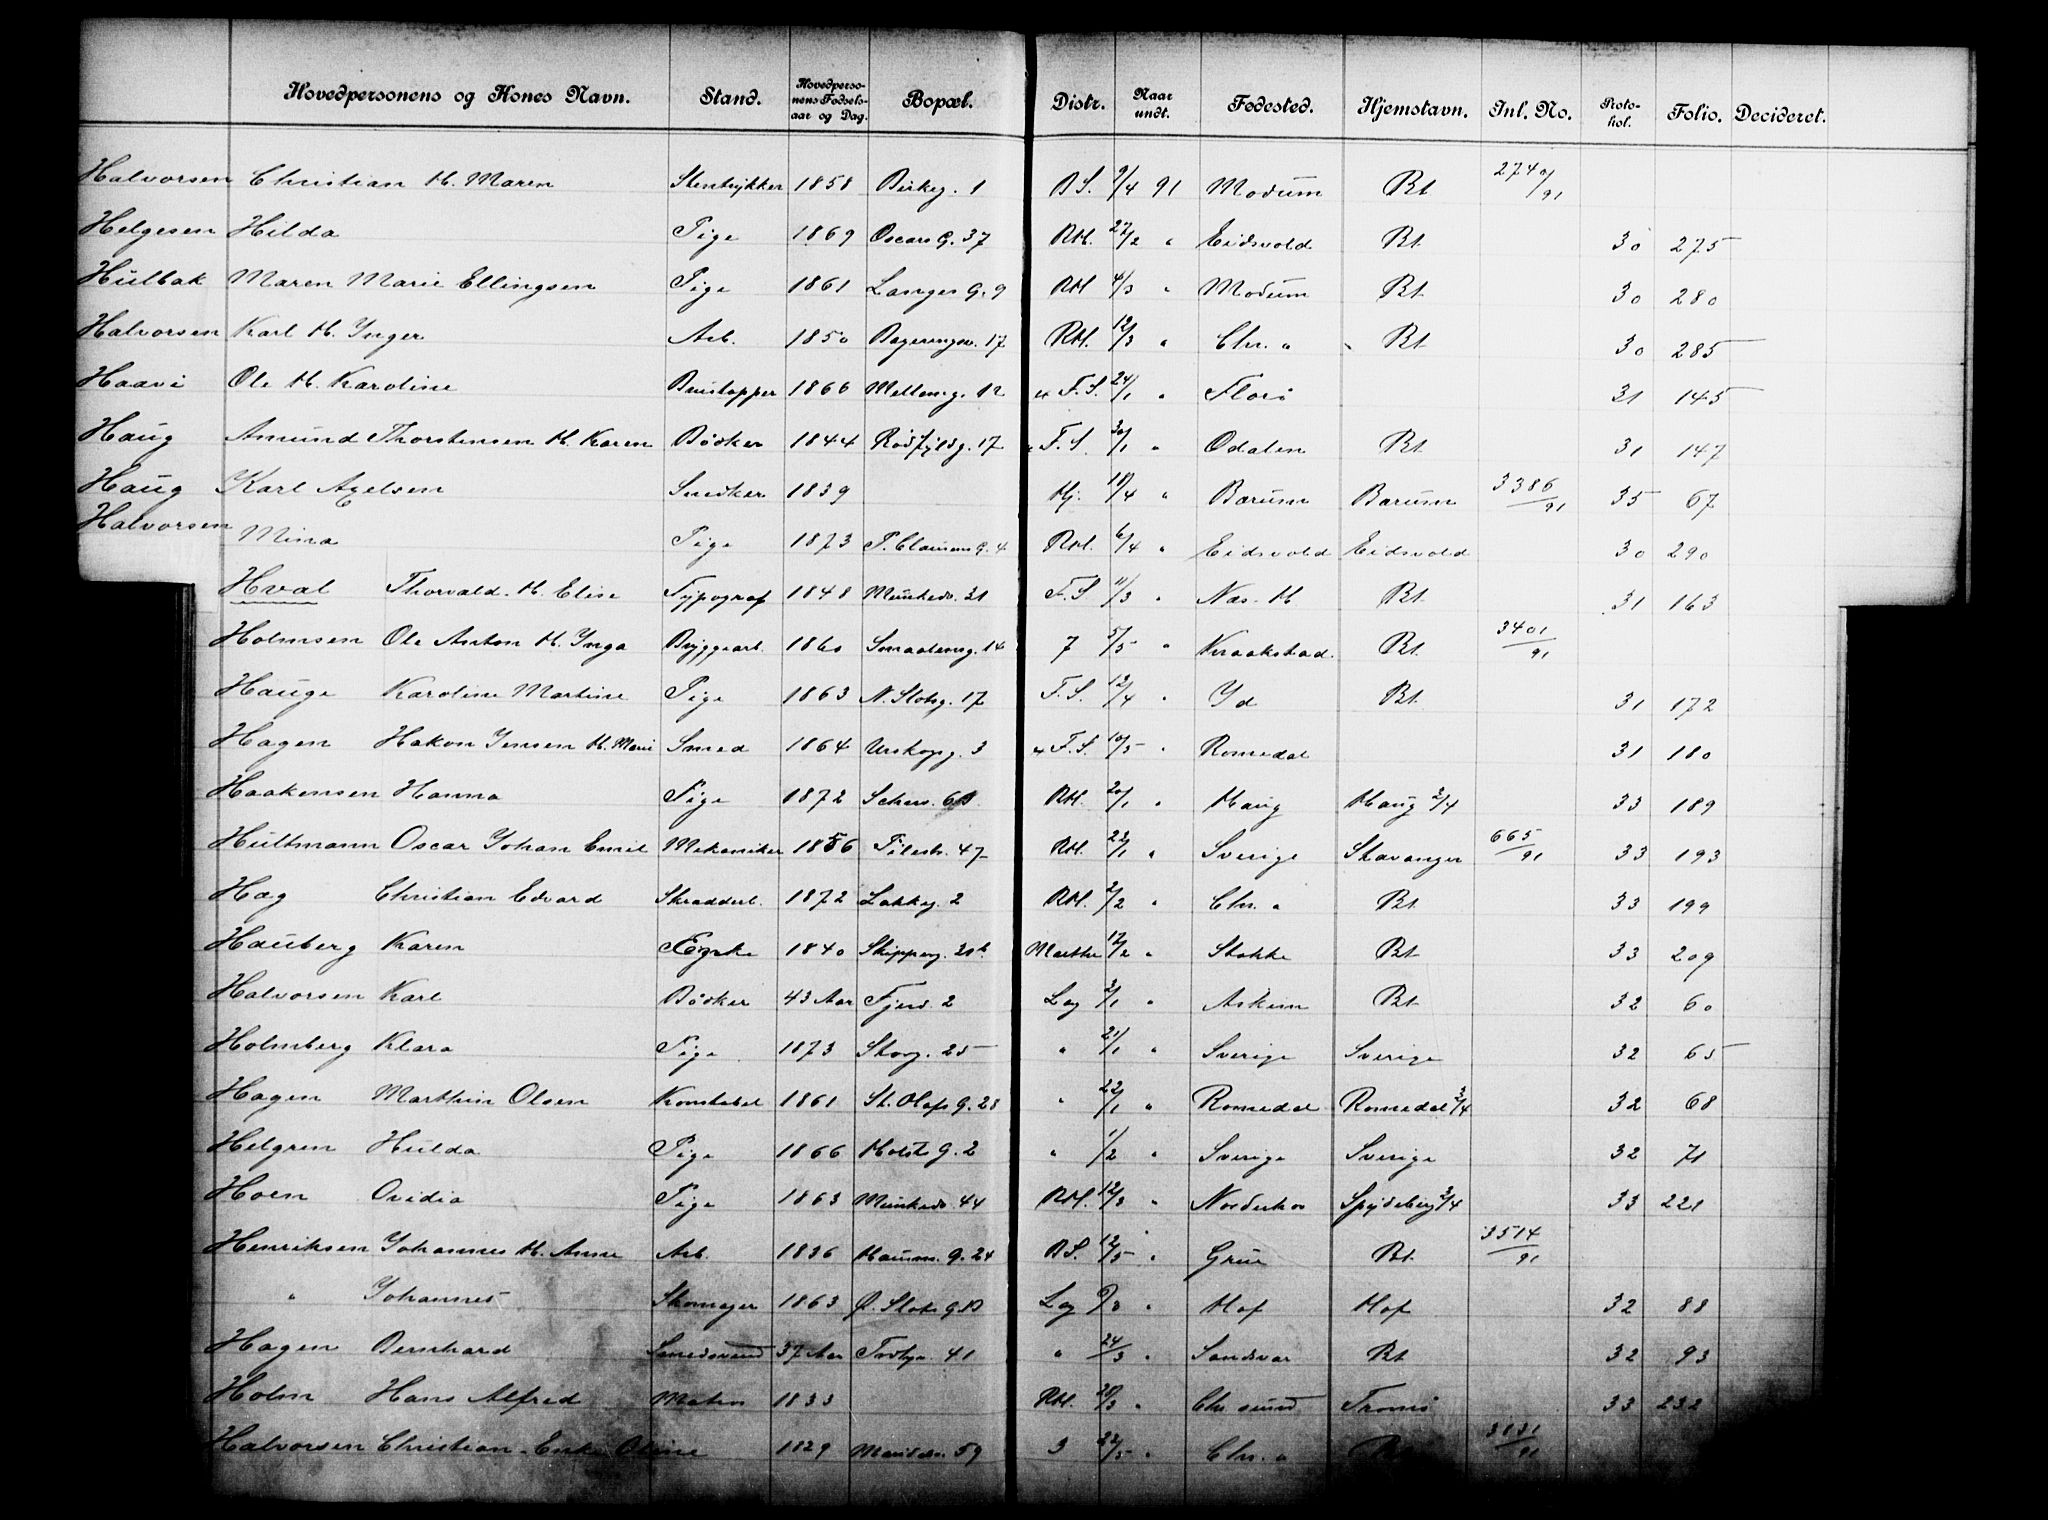 Hovedpersonens og Kones Navn. Stand. Hovedpersonens Fødselsaar og Dag. Bopæl. Distr. Naar undt. Fødested. Hjemstavn. Inl. No. Protokol. Folio. Decideret.
Halvorsen Christian H. Maren Stentrykker 1858 Birkeg. 1 B S. 9/4 91 Modum Bt 2740/91
Helgesen Hilda Pige 1869 Oscars G. 37 RH. 27/2 " Eidsvold Bt 30 275
Hulbak Maren Marie Ellingsen Pige 1861 Langes G. 9 RH 4/3 " Modum Bt 30 280
Halvorsen Karl H. Inger Arb. 1850 17 RH. 12/3 " Chr. a Bt 30 285
Haavi Ole H. Karoline 1866 Mellemg. 12 F. S. 24/1 " Florö 31 145
Haug Amund Thorstensen H. Karen Bödker 1844 Rödfyldg. 17 F. S. 30/1 " Odalen Bt 31 147
Haug Karl Axelsen Snedker 1839 Hj. 18/4 " Bærum Bærum 3386/91 35 67
Halvorsen Mina Pige 1873 P. Clausens G. 4 RH. 6/4 " Eidsvold Eidsvold 30 290
Hval Thorvald. H. Elise Typograf 1848 Munkedv. 31 F. S 11/3 " Næs. H Bt 31 163
Holmsen Ole Anton H. Inga Bryggearb. 1860 Smaaleneg. 14 7 5/5 " Kraakstad Bt. 3401/91
Hauge Karoline Martine Pige 1863 N. Slotsg. 17 F. S. 12/4 " Id Bt 31 172
Hagen Hakon Jensen H. Marie Smed 1864 Urskogg. 3 F. S. 10/5 " Romedal 31 180
Haakensen Hanna Pige 1872 Schus. 6B RH. 20/1 " Haug Haug 2/4 33 189
Hultmann Oscar Johan Emil Mekaniker 1856 Pilestr. 47 RH. 22/1 " Sverige Stavanger 665/91 33 193
Hag Christian Edvard Skrædderl. 1872 Lakkeg. 2 RH. 2/2 " Chr. a Bt. 33 199
Hauberg Karen 1840 Skipperg. 20b Marthe 12/2 " Stokke Bt 33 209
Halvorsen Karl Bödker 43 Aar Fjerd. 2 Log 2/1 " Askim Bt 32 60
Holmberg Klara Pige 1873 Storg. 25 " 21/1 " Sverige Sverige 32 65
Hagen Marthin Olsen Konstabel 1861 St. Olafs G. 23 " 22/1 " Romedal Romedal 2/4 32 68
Helgren Hulda Pige 1866 Holst G. 2 " 1/2 " Sverige Sverige 32 71
Hoen Ovidia Pige 1863 Munkedv. 44 RH. 12/3 " Norderhov Spydeberg 2/4 33 221
Henriksen Johannes H. Anne Arb. 1836 Hausm. G. 24 B S. 12/5 " Grue Bt. 3514/91
" Johannes Skomager 1863 Ø. Slots G. 13 Log 9/3 " Hof Hof 32 88
Hagen Bernhard Smedsvend 37 Aar 41 " 24/3 " Sandsvær Bt 32 93
Holm Hans Alfred Matros 1833 RH. 20/3 " Chr sund Tromsö 33 232
Halvorsen Christian. Enke Oline 1829 Maridalsv. 59 3 22/5 " Chr. a Bt 3131/91